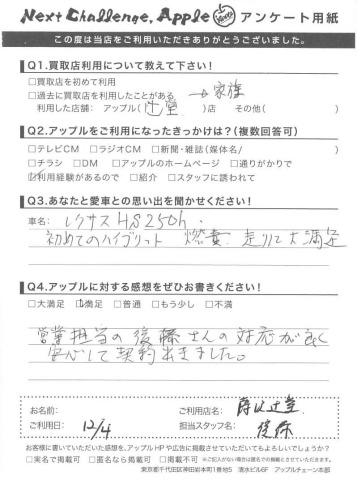 Next Challenge, Apple アンケート用紙
この度は当店をご利用いただきありがとうございました。
Q1.買取店利用について教えて下さい!
□買取店を初めて利用
□過去に買取店を利用したことがある →家族
利用した店舗: アップル(辻堂)店 その他( )
Q2.アップルをご利用になったきっかけは?(複数回答可)
□テレビCM □ラジオCM □新聞・雑誌(媒体名/ )
□チラシ □DM □アップルのホームページ □通りがかりで
☑利用経験があるので □紹介 □スタッフに誘われて
Q3.あなたと愛車との思い出を聞かせください!
車名: レクサス HS250h.
初めてのハイブリット 燃費、走りに大満足
Q4.アップルに対する感想をぜひお書きください!
□大満足 ☑満足 □普通 □もう少し □不満
営業担当の後藤さんの対応が良く
安心して契約出きました。
お名前:
ご利用店名: 辻堂
ご利用日: 12/4
担当スタッフ名: 後藤
お客様に書いていただいた感想を、アップルHPや広告に掲載させていただいてもよろしいでしょうか?
□実名で掲載可 □匿名なら掲載可 □掲載不可 ※ご記入がない場合は匿名での掲載とさせていただきます。
東京都千代田区神田岩本町1番地5 清水ビル6F アップルチェーン本部